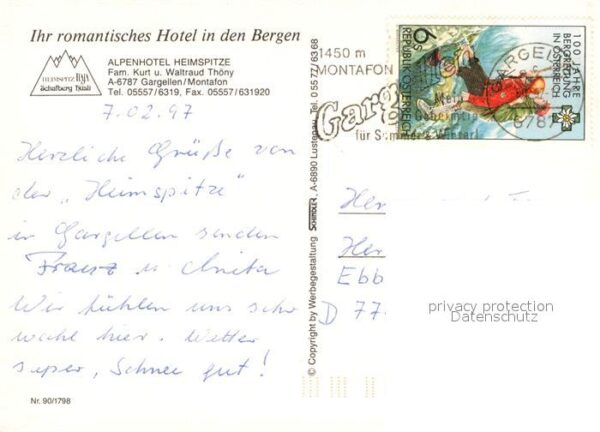 Ihr romantisches Hotel in den Bergen
ALPENHOTEL HEIMSPITZE
Fam. Kurt u. Waltraud Thöny
A-6787 Gargellen/Montafon
Tel. 05557/6319, Fax. 05557/631920
HEIMSPITZE
Schafberg Hüsli
7.02.97
Herzliche Grüße von
der „Heimspitze"
in Gargellen senden
Franz u Anita
Wir fühlen uns sehr
wohl hier. Wetter
super, Schnee gut!
Nr. 90/1798
© Copyright by Werbegestaltung A-6890 Lustenau, Tel. 05577/6368
1450 m
MONTAFON
für Sommer & Winter!
GARGELLEN
6787
6 S
REPUBLIK ÖSTERREICH
100 JAHRE
BERGRETTUNG
IN ÖSTERREICH
Ebb
D 77
privacy protection
Datenschutz